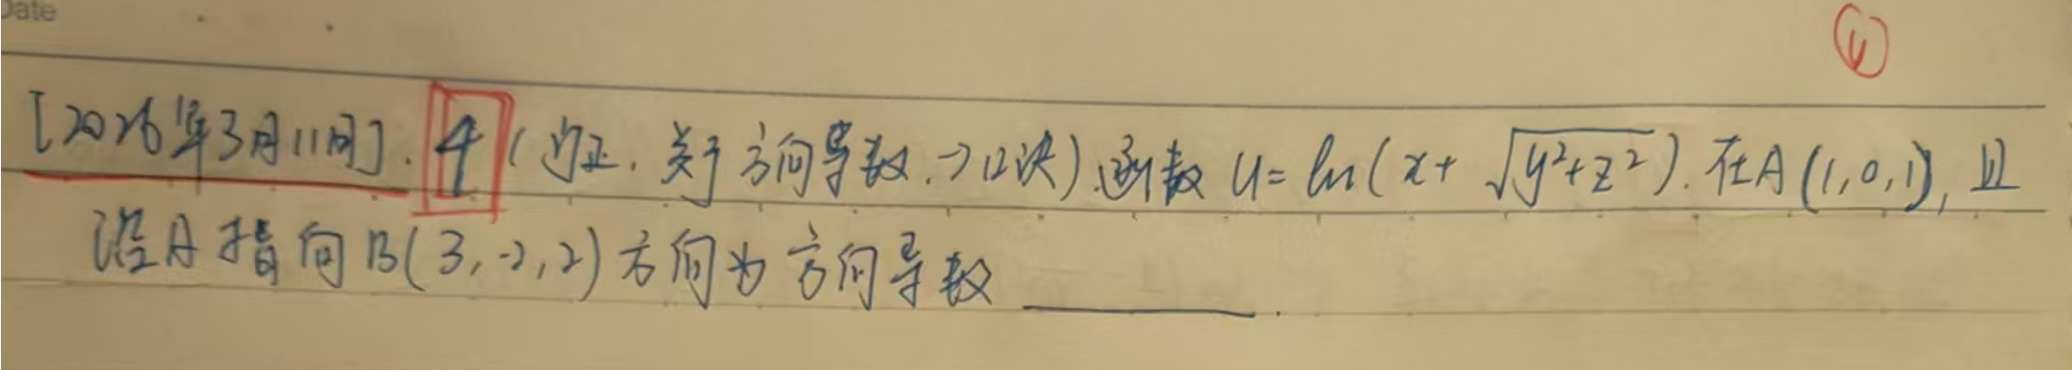 Date
④
[2026年3月11日]. 4 (订正. 关于方向导数.→口诀) 函数 u= ln(x+ √(y²+z²)). 在A(1,0,1), 且
沿A指向B(3,-2,2)方向为方向导数 ______.